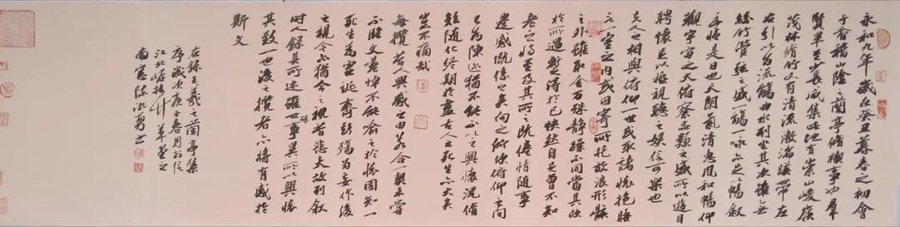 永和九年歲在癸丑暮春之初會
于會稽山陰之蘭亭脩禊事也群
賢畢至少長咸集此地有崇山峻嶺
茂林脩竹又有清流激湍暎帶左
右引以為流觴曲水列坐其次雖無
絲竹管弦之盛一觴一詠亦足以暢敘
幽情是日也天朗氣清惠風和暢仰
觀宇宙之大俯察品類之盛所以遊目
騁懷足以極視聽之娛信可樂也
夫人之相與俯仰一世或取諸懷抱晤
言一室之內或因寄所托放浪形骸
之外雖取舍萬殊靜躁不同當其欣
於所遇蹔得於己快然自足曾不知
老之將至及其所之既倦情隨事
遷感慨係之矣向之所欣俯仰之間
已為陳迹猶不能不以之興懷況脩
短隨化終期於盡古人云死生亦大矣
豈不痛哉
每攬昔人興感之由若合一契未嘗
不臨文嗟悼不能喻之於懷固知一
死生為虛誕齊彭殤為妄作後
之視今亦猶今之視昔悲夫故列敘
時人錄其所述雖世殊事異所以興懷
其致一也後之攬者亦將有感於
斯文
右錄王羲之蘭亭集
序歲次庚子春月於信
江北岸竹草堂之
南窗陳勇書